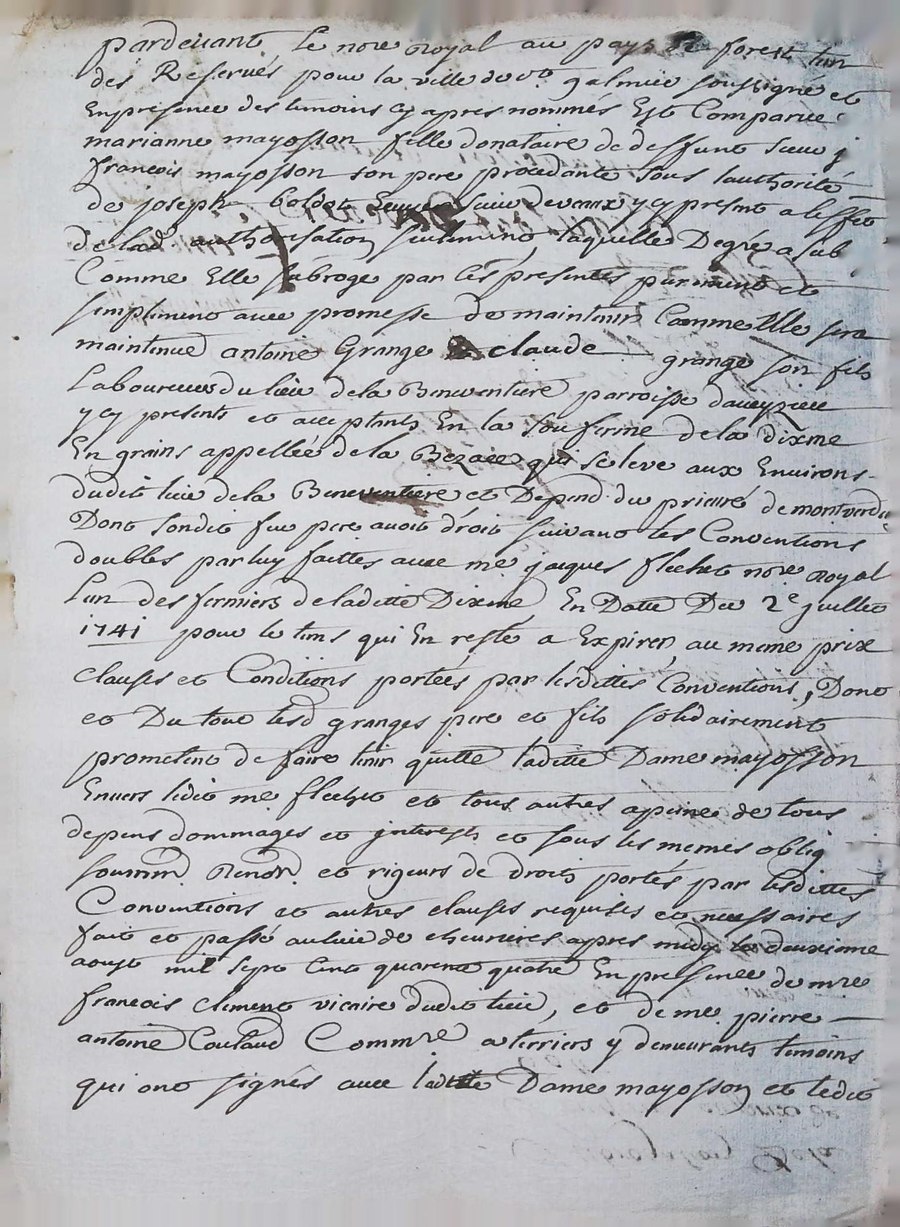 pardevant Le nore royal au pays de forest lun
des Reservés pour la ville de st galmier soussigné et
En presence des temoins cy apres nommés Est Comparue
marianne mayosson fille donataire de deffunt sieur j
françois mayosson son pere procedante sous lauthorité
de joseph devaux y cy present a leffet
de lad authorisation seulement, laquelle Degré a sub
Comme Elle sabroge par ces presentes purement et
simplement avec promesse de maintenir Comme Elle sera
maintenue antoine Grange & claude grange son fils
Laboureurs du lieu de la Beneventiere parroisse daveyzieu
y cy presents et acceptants En la sou ferme de la Dixme
En grains appellée de la Bezace qui se leve aux Environs
dudit lieu de la Beneventiere et Depend du prieuré de montverdu
Dont sondit feu pere avoit droit suivant les Conventions
doubles par luy faittes avec me jaques flechet nore royal
Lun des fermiers de laditte Dixme En Datte Du 2e juillet
1741 pour le tems qui En reste a Expirer, au meme prix
clauses et Conditions portées par lesdittes Conventions, Dont
et Du tout lesd granges pere et fils solidairement
promettent de faire tenir quitte laditte Dame mayosson
Envers ledit me flechet et tous autres apeine de tous
depens dommages et interests et sous les memes oblig
soumm Renon et rigeurs de droits portés par lesdittes
Conventions et autres clauses requises et necessaires
fait et passé au lieu de chevrieres apres midy le deuxieme
aoust mil sept cent quarente quatre En presence de mre
françois climent vicaire dudit lieu, et de me pierre
antoine Coulaud Commre a terriers y demeurants temoins
qui ont signés avec laditte Dame mayosson et ledit